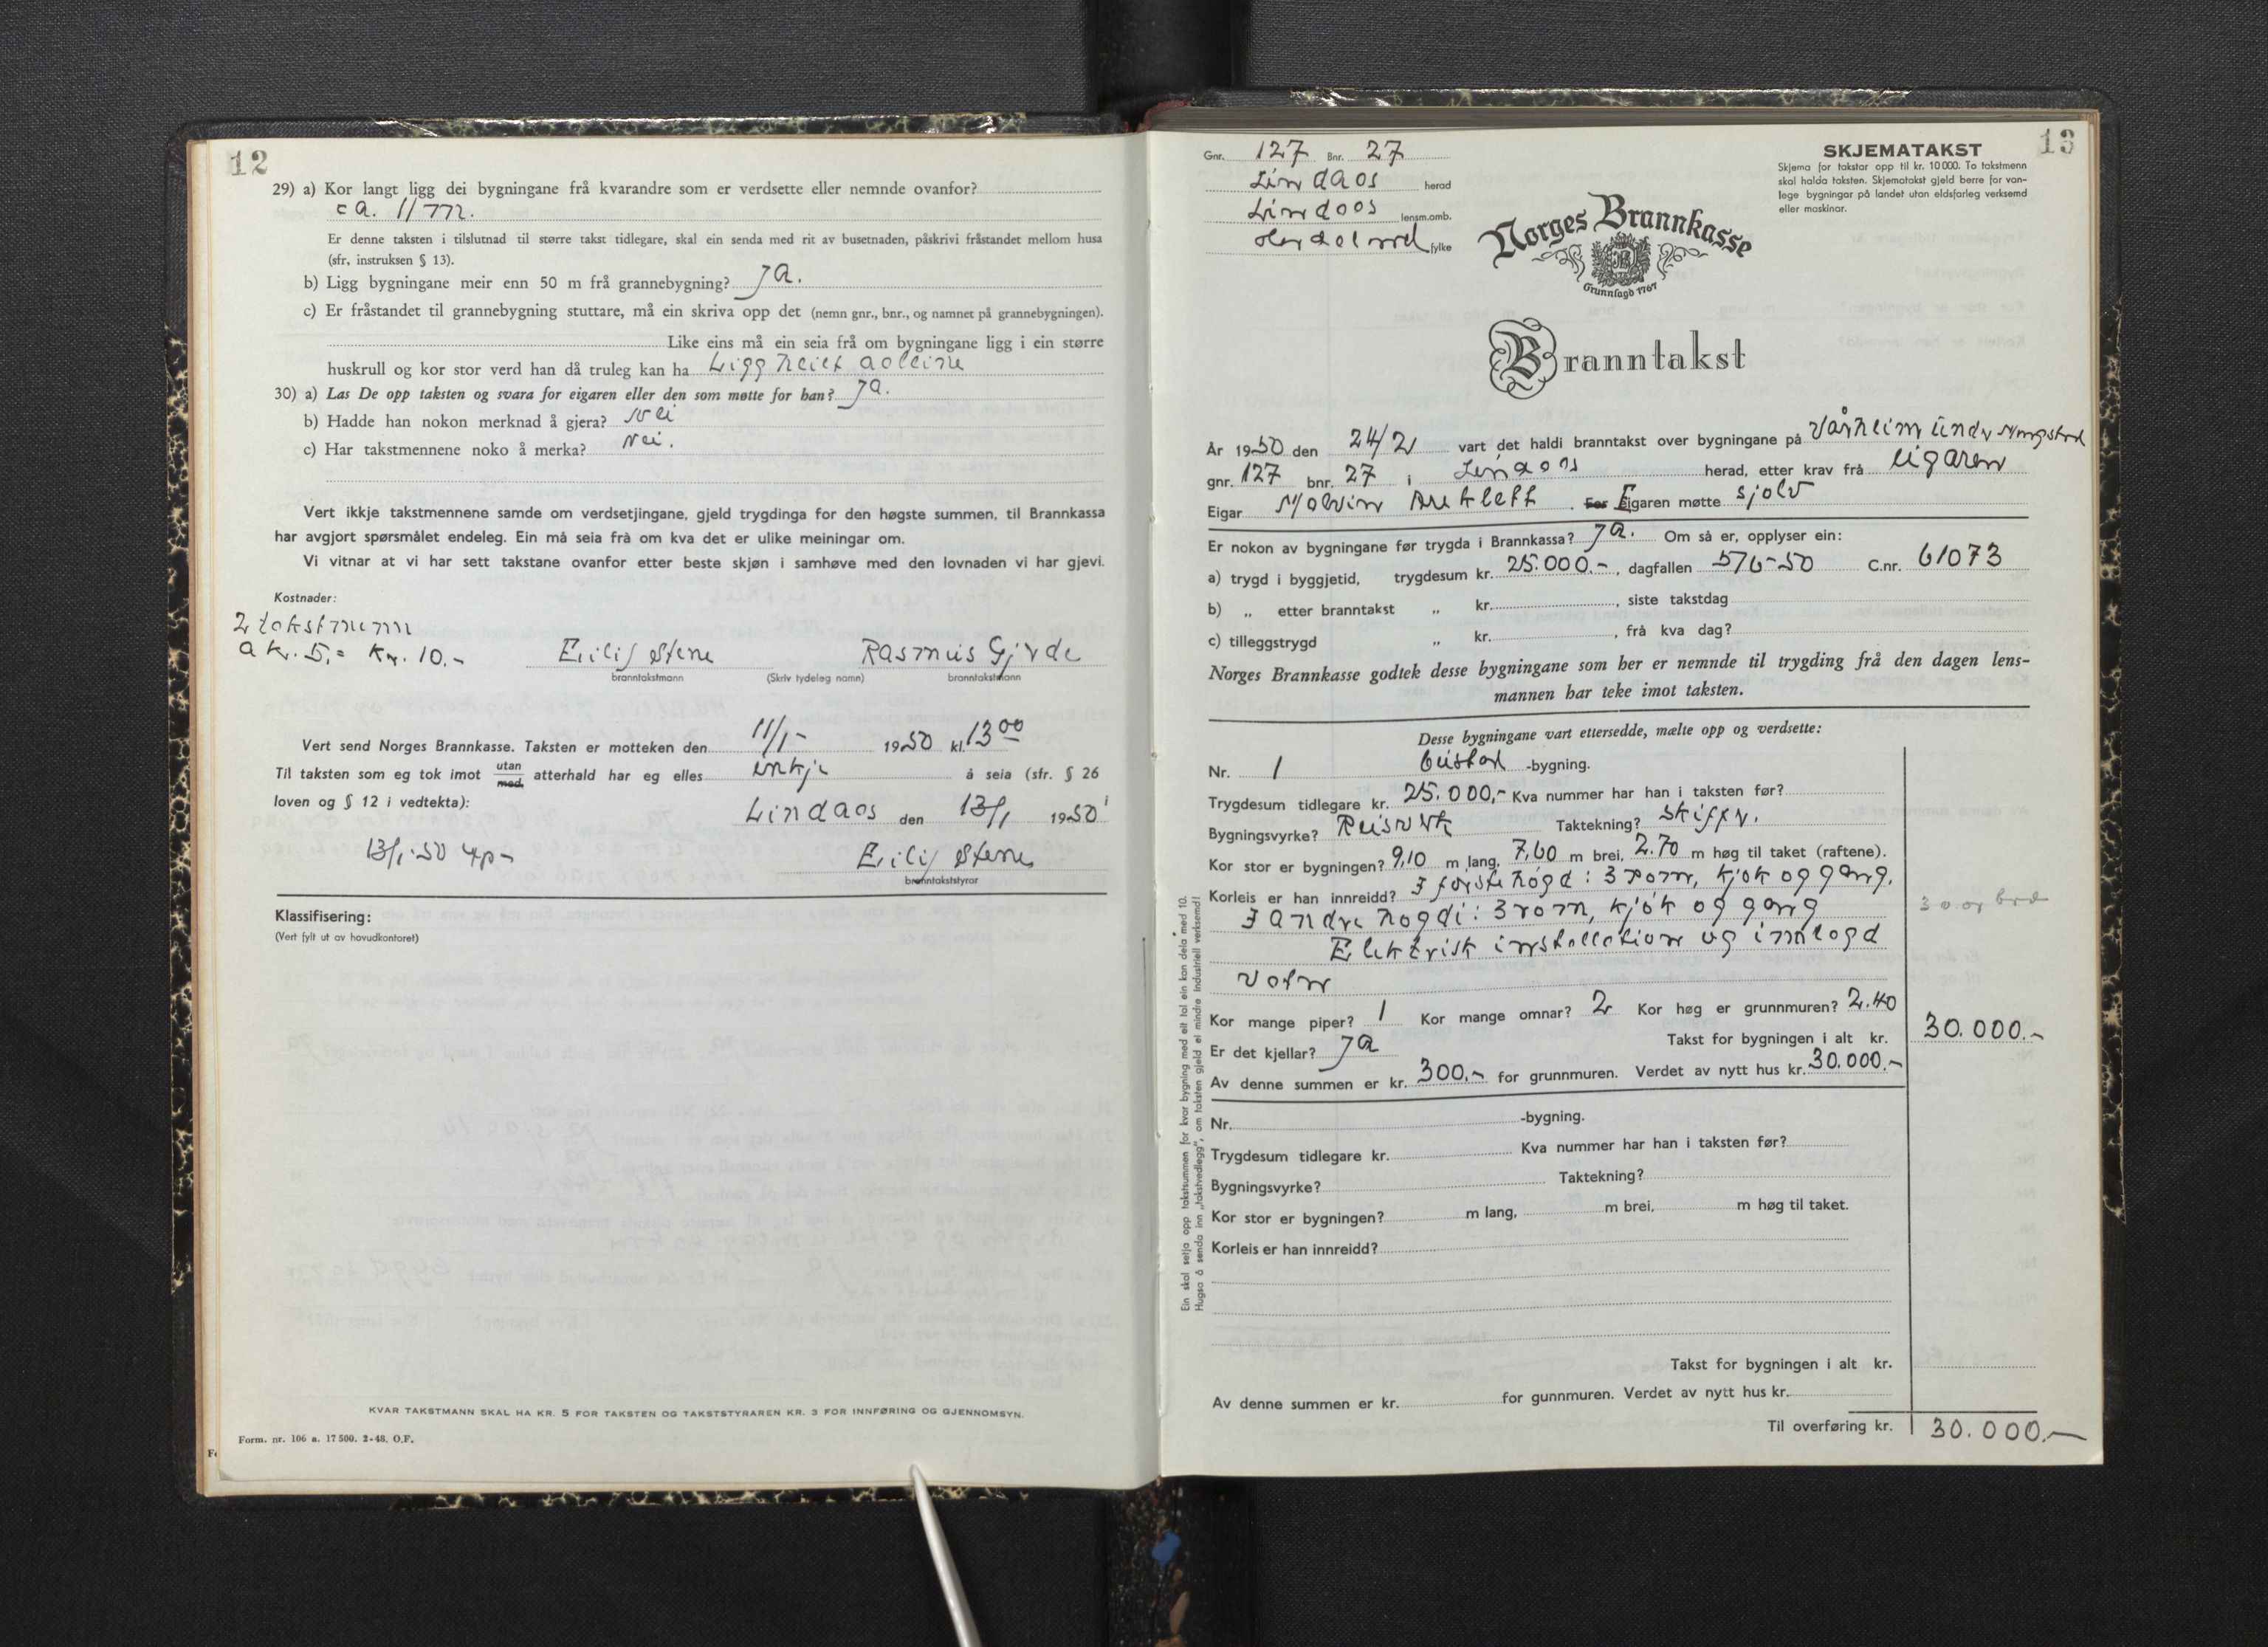 12
29) a) Kor langt ligg dei bygningane frå kvarandre som er verdsette eller nemnde ovanfor?
ca. 11 m.
Er denne taksten i tilslutnad til større takst tidlegare, skal ein senda med rit av busetnaden, påskrivi fråstandet mellom husa
(sfr, instruksen § 13).
b) Ligg bygningane meir enn 50 m frå grannebygning? Ja.
c) Er fråstandet til grannebygning stuttare, må ein skriva opp det (nemn gnr., bnr., og namnet på grannebygningen).
Like eins må ein seia frå om bygningane ligg i ein større
huskrull og kor stor verd han då truleg kan ha Ligg heilt aoleine
30) a) Las De opp taksten og svara for eigaren eller den som møtte for han? Ja.
b) Hadde han nokon merknad å gjera? Nei
c) Har takstmennene noko å merka? Nei.
Vert ikkje takstmennene samde om verdsetjingane, gjeld trygdinga for den høgste summen, til Brannkassa
har avgjort spørsmålet endeleg. Ein må seia frå om kva det er ulike meiningar om.
Vi vitnar at vi har sett takstane ovanfor etter beste skjøn i samhøve med den lovnaden vi har gjevi.
Kostnader:
2 takstmenn
a kr. 5,= Kr. 10.-
Eilif Stene Rasmus Gjrde
branntakstmann (Skriv tydeleg namn) branntakstmann
Vert send Norges Brannkasse. Taksten er motteken den 11/1- 1950 kl. 13 00
Til taksten som eg tok imot utan med. atterhald har eg elles inkje å seia (sfr. § 26
loven og § 12 i vedtekta):
Lindaas den 13/1 1950
13/1-50
Eilif Stene
branntakststyrar
Klassifisering:
(Vert fylt ut av hovudkontoret)
KVAR TAKSTMANN SKAL HA KR. 5 FOR TAKSTEN OG TAKSTSTYRAREN KR. 3 FOR INNFØRING OG GJENNOMSYN.
Form. nr. 106 a. 17500. 2-48. O.F.
13
Gnr. 127 Bnr. 27
Lindaas herad
Lindaas lensm.omb.
Hordaland fylke
SKJEMATAKST
Skjema for takstar opp til kr. 10000. To takstmenn
skal halda taksten. Skjematakst gjeld berre for van-
lege bygningar på landet utan eldsfarleg verksemd
eller maskinar.
Norges Brannkasse
Grunnlagd 1767
Branntakst
År 1950 den 24/2 vart det haldi branntakst over bygningane på Vårheim undr
gnr. 127 bnr. 27 i Lindaas herad, etter krav frå eigaren
Eigar Malvin For Eigaren møtte sjølv
Er nokon av bygningane før trygda i Brannkassa? Ja. Om så er, opplyser ein:
a) trygd i byggjetid, trygdesum kr. 25.000.-, dagfallen 5/6-50 C.nr. 61073
b) „ etter branntakst „ kr. , siste takstdag
c) tilleggstrygd „ kr. , frå kva dag?
Norges Brannkasse godtek desse bygningane som her er nemnde til trygding frå den dagen lens-
mannen har teke imot taksten.
Desse bygningane vart ettersedde, mælte opp og verdsette:
Nr. 1 Bustad -bygning.
Trygdesum tidlegare kr. 25.000,- Kva nummer har han i taksten før?
Bygningsvyrke? Reisvrk Taktekning? Skiffr.
Kor stor er bygningen? 9,10 m lang, 7,60 m brei, 2.70 m høg til taket (raftene).
Korleis er han innreidd? I første høgd: 3 rom, kjøk og gang.
I andre høgdi: 3 rom, kjøk og gang
Elektrisk installation og innlagd
vatn
Kor mange piper? 1 Kor mange omnar? 2 Kor høg er grunnmuren? 2.40
Er det kjellar? Ja Takst for bygningen i alt kr. 30.000.-
Av denne summen er kr. 300.- for grunnmuren. Verdet av nytt hus kr. 30.000.-
Nr. -bygning.
Trygdesum tidlegare kr. Kva nummer har han i taksten før?
Bygningsvyrke? Taktekning?
Kor stor er bygningen? m lang, m brei, m høg til taket.
Korleis er han innreidd?
Takst for bygningen i alt kr.
Av denne summen er kr. for gunnmuren. Verdet av nytt hus kr.
Til overføring kr. 30.000.-
Ein skal setja opp takstsummen for kvar bygning med eit tal ein kan dela med 10.
Hugsa å senda inn „takstvedlegg", om taksten gjeld ei mindre industriell verksemd!